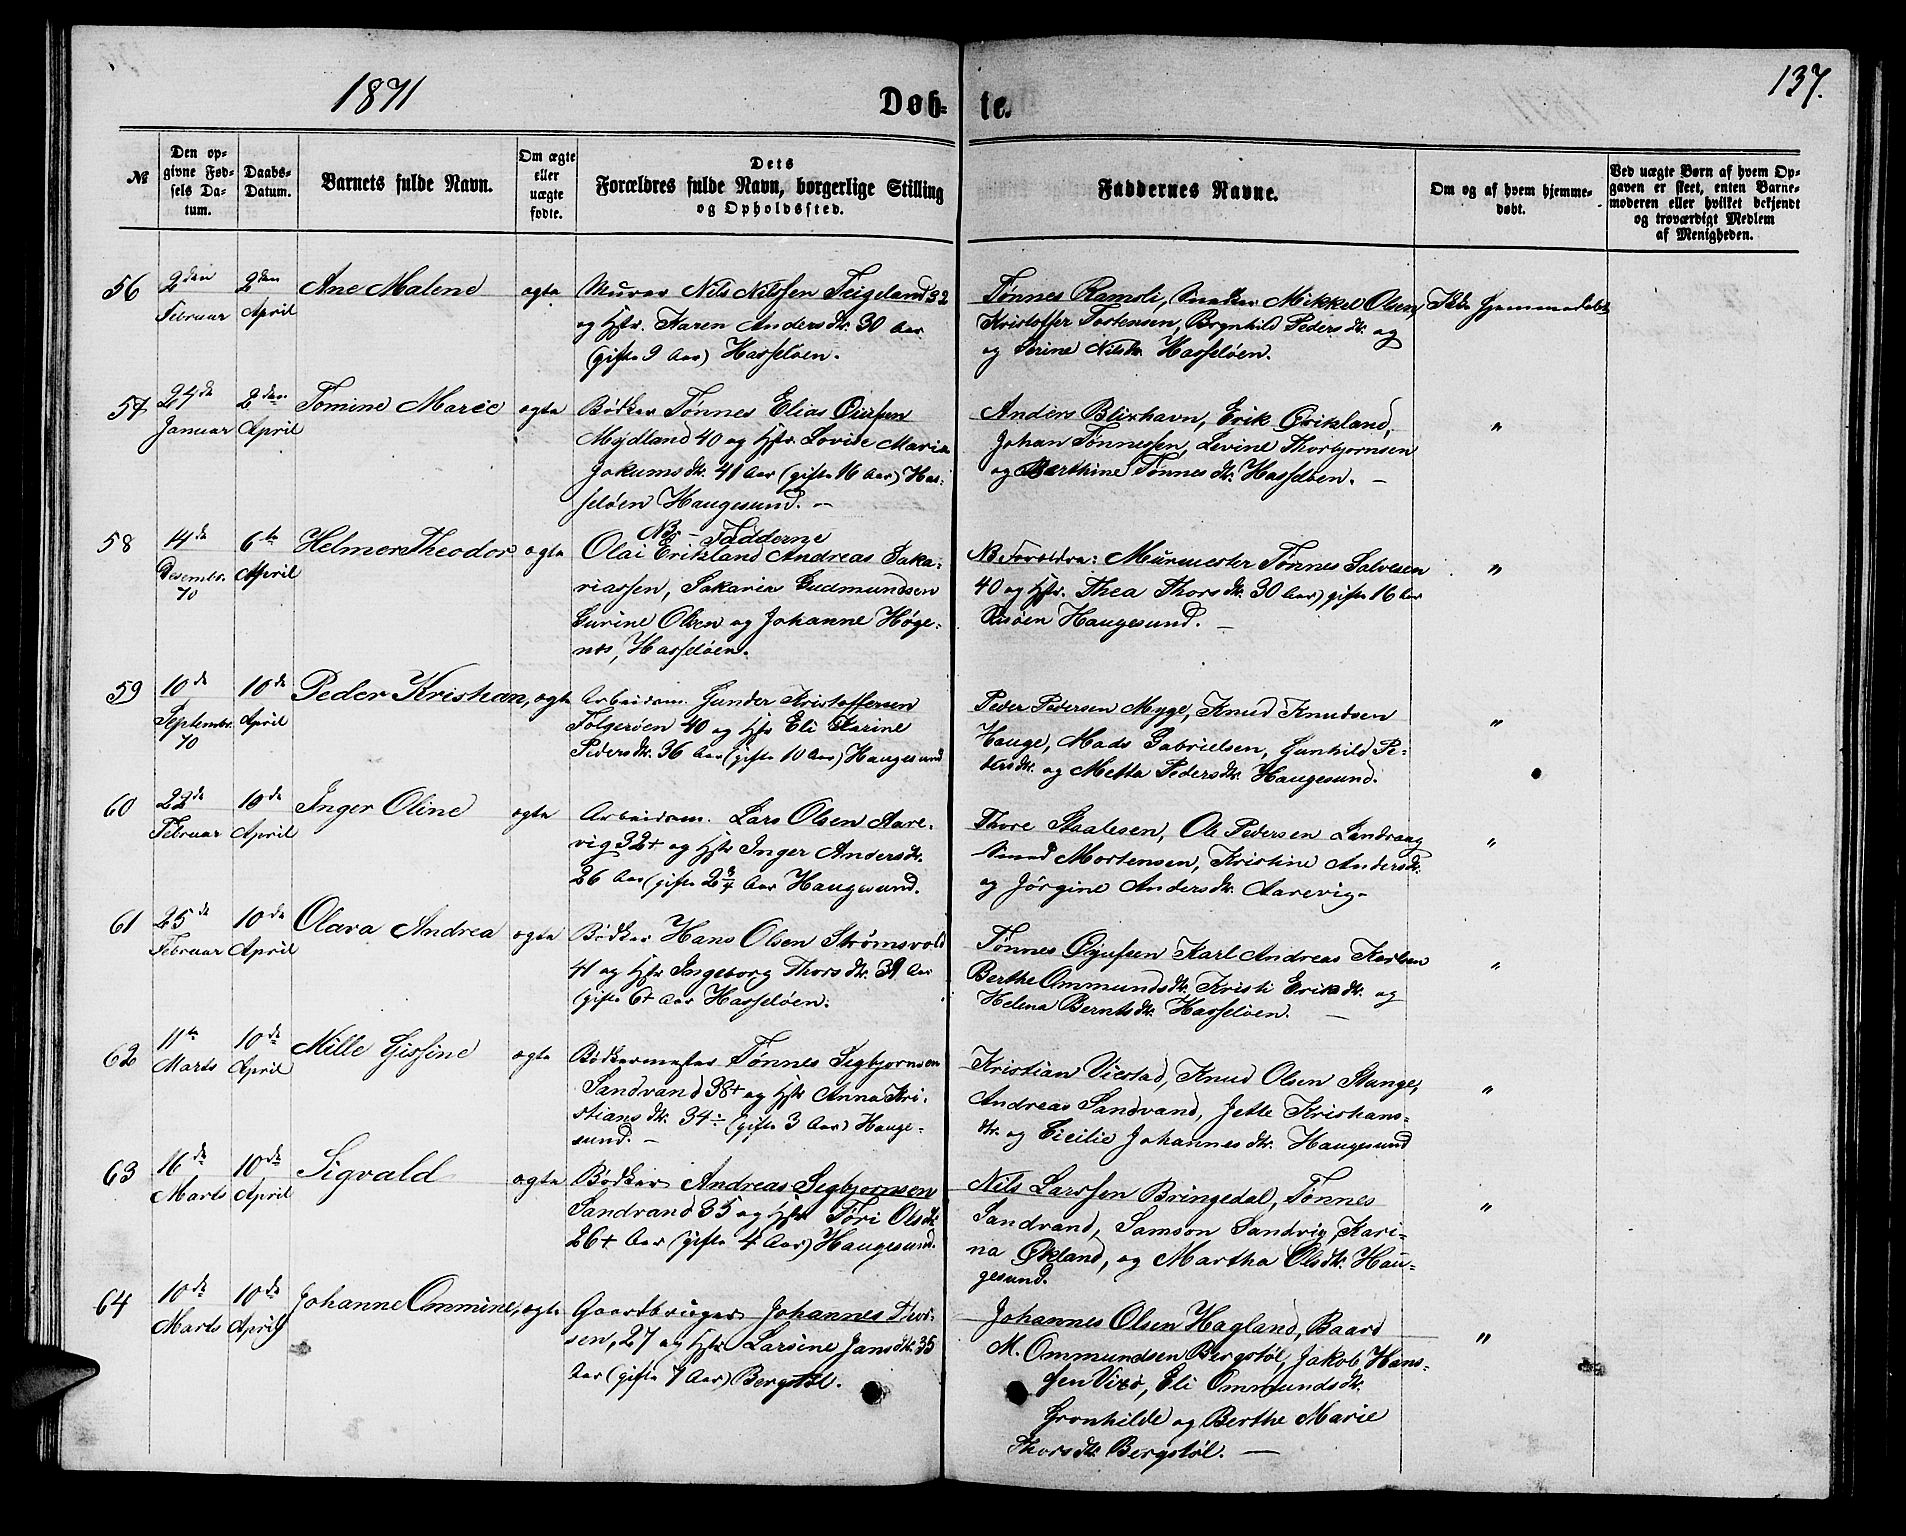 1871
Døb-
te.
137.
№
Den op-
givne Fød-
sels Da-
tum.
Daabs-
Datum.
Barnets fulde Navn.
Om ægte
eller
uægte
fødte.
Dets
Forældres fulde Navn, borgerlige Stilling
og Opholdssted.
Faddernes Navne.
Om og af hvem hjemme-
døbt.
Ved uægte Børn af hvem Op-
gaven er skeet, enten Barne-
moderen eller hvilket bekjendt
og troværdigt Medlem
af Menigheden.
56
2den
Februar
2den
April
Ane Malene
ægte
Murer Nils Nilssen Teigeland 32
og Hstr. Karen Andersdtr. 30 Aar
(gifte 9 Aar) Hasseløen.
Tønnes Ramsli, Snedker Mikkel Olsen,
Kristoffer Tortensen, Brynhild Pedersdtr. og
og Serine Nilsdtr. Hasseløen.
Ikke hjemmedøbt
57
24de
Januar
2den
April
Tomine Marie
ægte
Bødker Tønnes Elias
Mydland 40 og Hstr. Lovise Maria
Jokumsdtr. 41 Aar (gifte 16 Aar) Has-
seløen Haugesund. —
Anders Blixhavn, Erik Erikland,
Johan Tønnessen, Levine Thorbjornsen
og Barthine Tønnesdtr. Hasseløen. —
"
58
14de
Desembr.
70
6te
April
Helmer Theodor
ægte
NB — Fadderne
Olai Erikland Andreas Saka-
riassen, Sakaria Gudmundsen
Gurine Olsen og Johanne Høge-
nes, Hasseløen.
NB Forældre: Murmester Tønnes Salvesen
40 og Hstr. Thea Thorsdtr. 30 Aar) gifte 16 Aar
Risøen Haugesund. —
"
59
10de
Septembr.
70
10de
April
Peder Kristian,
ægte
Arbeidsm. Gunder Kristoffersen
Folgerøen 40 og Hstr Eli Karine
Pedersdtr. 36 Aar (gifte 10 Aar) Haugesund
Peder Pedersen Myge, Knud Knudsen
Hauge, Mads Gabrielsen, Gunhild Pe-
dersdtr. og Metta Pedersdtr. Haugesund.
"
60
22de
Februar
10de
April
Inger Oline
ægte
Arbeidsm. Lars Olsen Aare-
vig 32+ og Hstr Inger Andersdtr.
26 Aar (gifte 2 3/4 Aar Haugesund.
Thore Staalesen, Ole Pedersen Landraag
Mortensen, Kristine Andersdtr.
og Jørgine Andersdtr. Aarevig.
"
61
25de
Februar
10de
April
Olava Andrea
ægte
Bødker Hans Olsen Strømsvold
41 og Hstr Ingeborg Thorsdtr. 39 Aar
(gifte 6+ Aar Hasseløen.
Tønnes Karl Andreas Karlsen
Berthe Ommundsdtr. Kristi Eriksdtr. og
Helena Berntsdtr. Hasseløen. —
"
62
11te
Marts
10de
April
Mille Gissine
ægte
Bødkermester Tønnes Sigbjornsen
Sandvand 38+ og Hstr Anna Kri-
stiansdtr. 34÷ (gifte 3 Aar) Hauge-
sund. —
Kristian Viestad, Knud Olsen Stange,
Andreas Sandvand, Jette Kristians-
dtr. og Cicilie Johannesdtr. Haugesund
"
63
16de
Marts
10de
April
Sigvald
ægte
Bødker Andreas Sigbjornsen
Sandvand 35 og Hstr Tøri Olsdtr.
26+ Aar (gifte 4 Aar) Haugesund.
Nils Larssen Bringedal, Tønnes
Sandvand, Samson Sandvig, Kari-
na Økland, og Martha Olsdtr. Hau-
gesund.
"
64
10de
Marts
10de
April
Johanne Ommine,
ægte
Gaardbruger Johannes Thor-
sen, 27 og Hstr Larsine Jansdtr. 35
Aar (gifte 7 Aar) Bergstøl.
Johannes Olsen Hagland, Baard
M. Ommundsen Bergstøl, Jakob Hans-
sen Vixø, Eli Ommundsdtr.
Gronhilde og Berthe Marie
Thorsdtr. Bergstøl. —
"